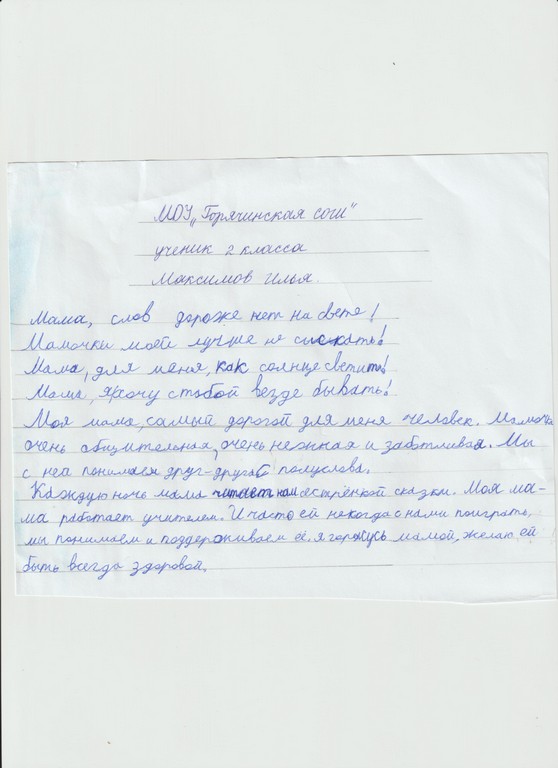 МОУ „Горячинская сош"
ученик 2 класса
Максимов Илья.
Мама, слов дороже нет на свете!
Мамочки моей лучше не сыскать!
Мама, для меня, как солнце светить!
Мама, я хочу с тобой везде бывать!
Моя мама, самый дорогой для меня человек. Мамочка
очень общительная, очень нежная и заботливая. Мы
с неа понимаем друг-друга с полуслова.
Каждую ночь мама читает нам с сестрёнкой сказки. Моя ма-
ма работает учителем. И часто ей некогда с нами поиграть,
мы понимаем и поддерживаем её, я горжусь мамой, желаю ей
быть всегда здоровой.